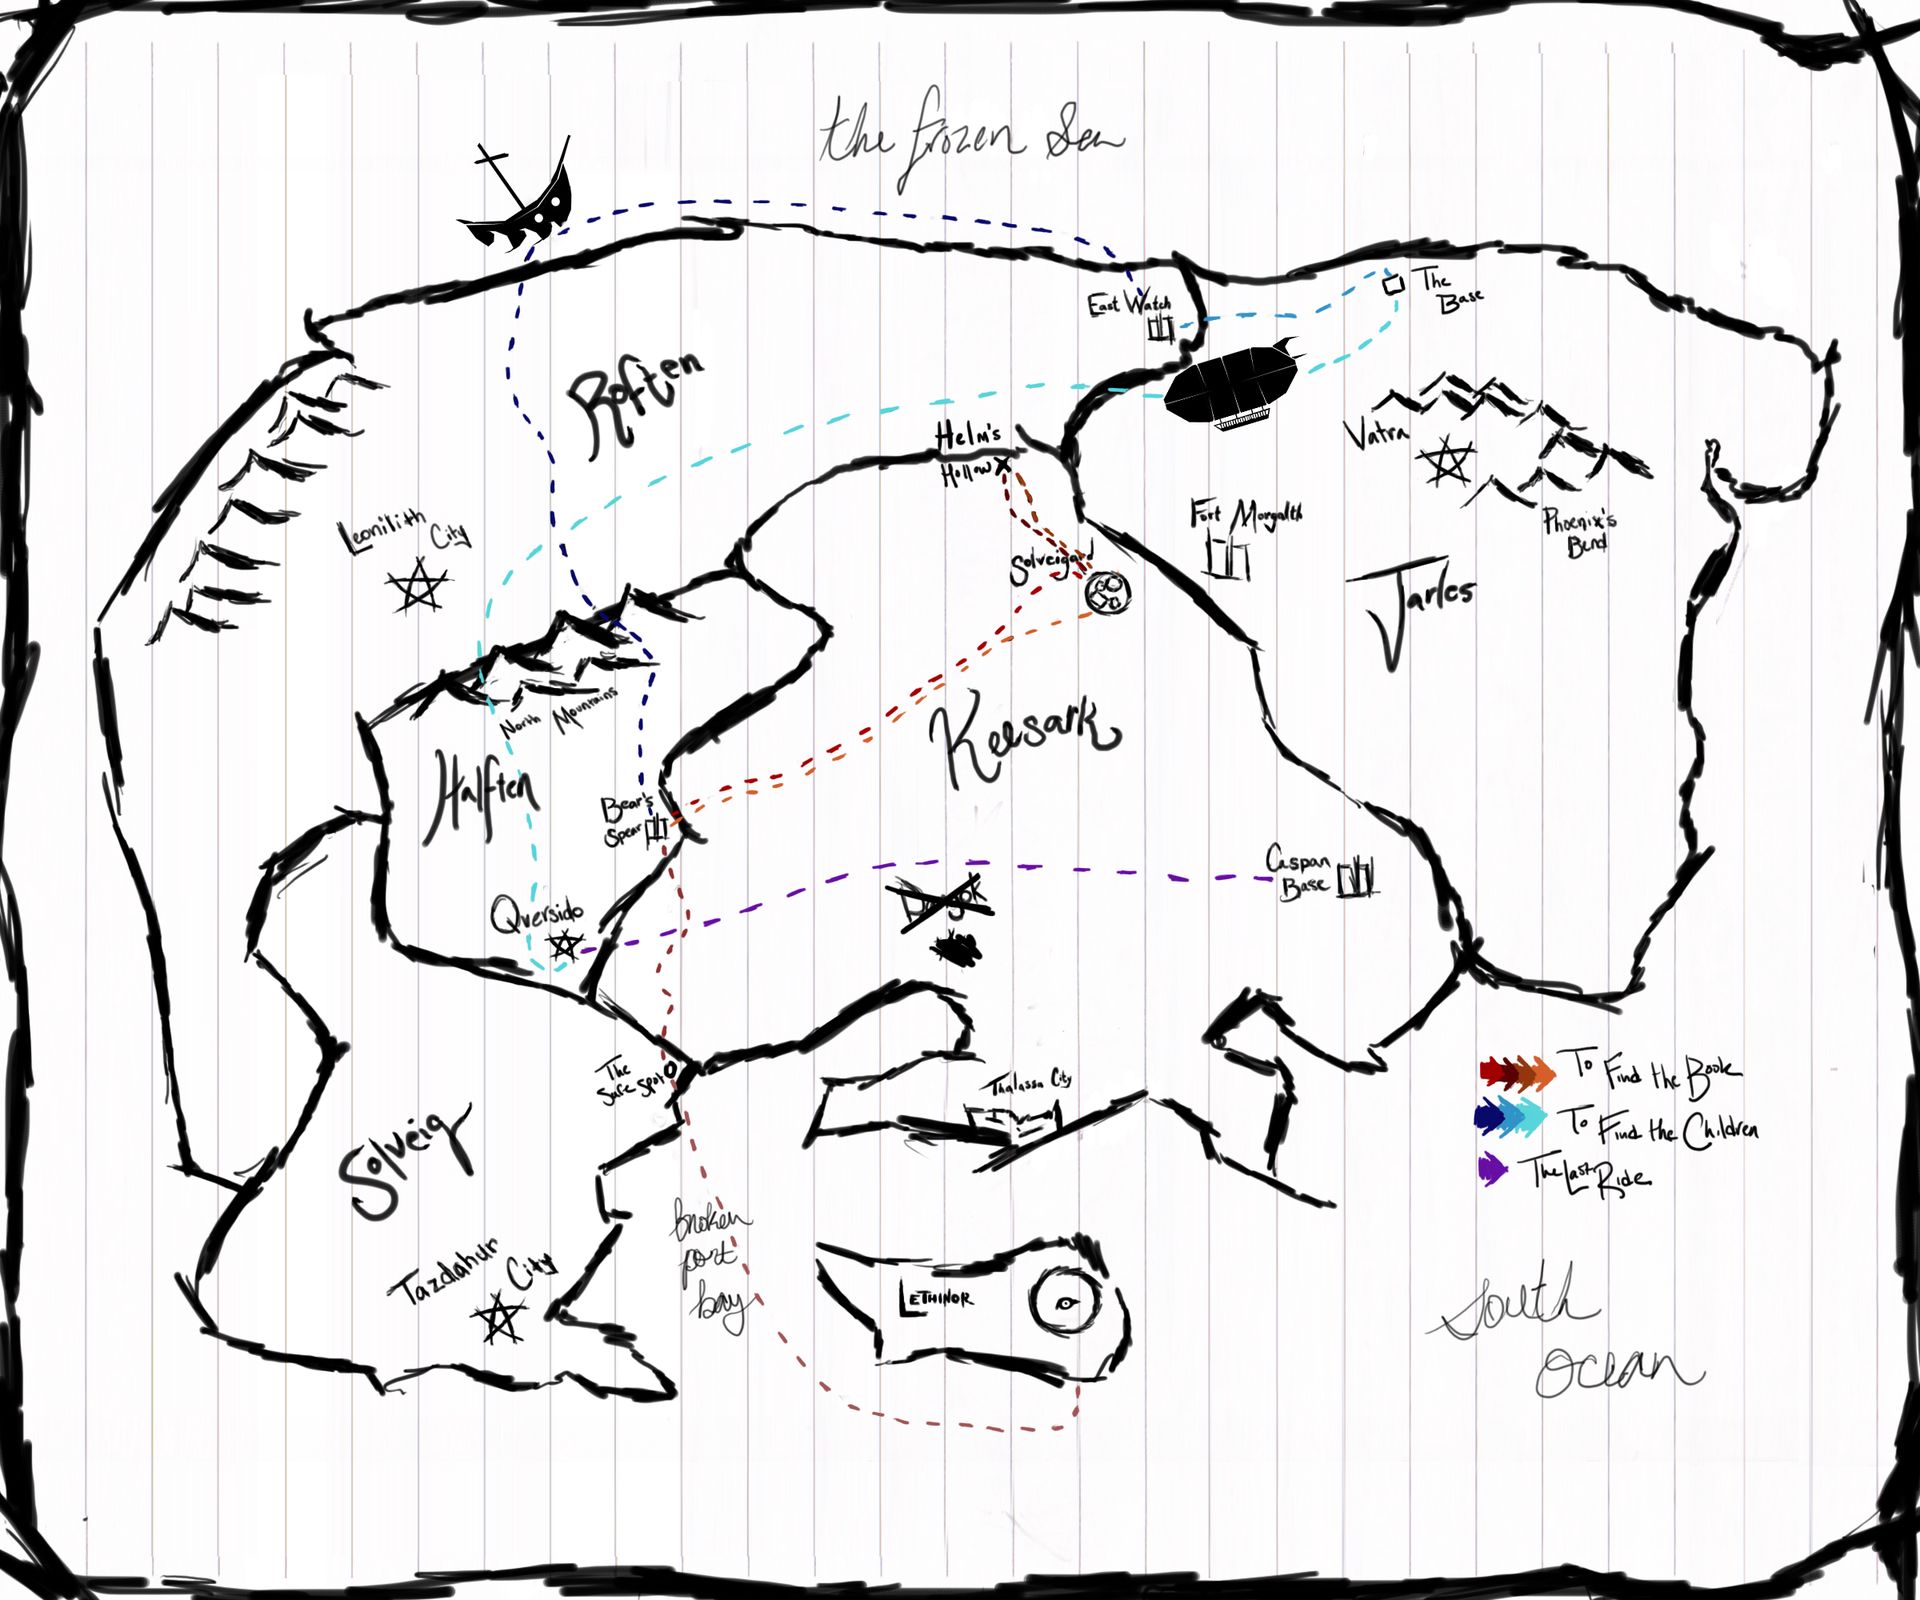 the frozen Sea
East Watch
The
Base
Roften
Helm's
Hollow
Vatra
Leonilith
City
Fort Morgalth
Phoenix's
Bend
Solveigard
Jarles
North Mountains
Keesark
Halften
Bear's
Spear
Caspan
Base
Qversido
The
Safe Spot
Thalassa City
To Find the Book
To Find the Children
The Last Ride
Solveig
Broken
port
bay
Tazdahur
City
LETHINOR
South
Ocean